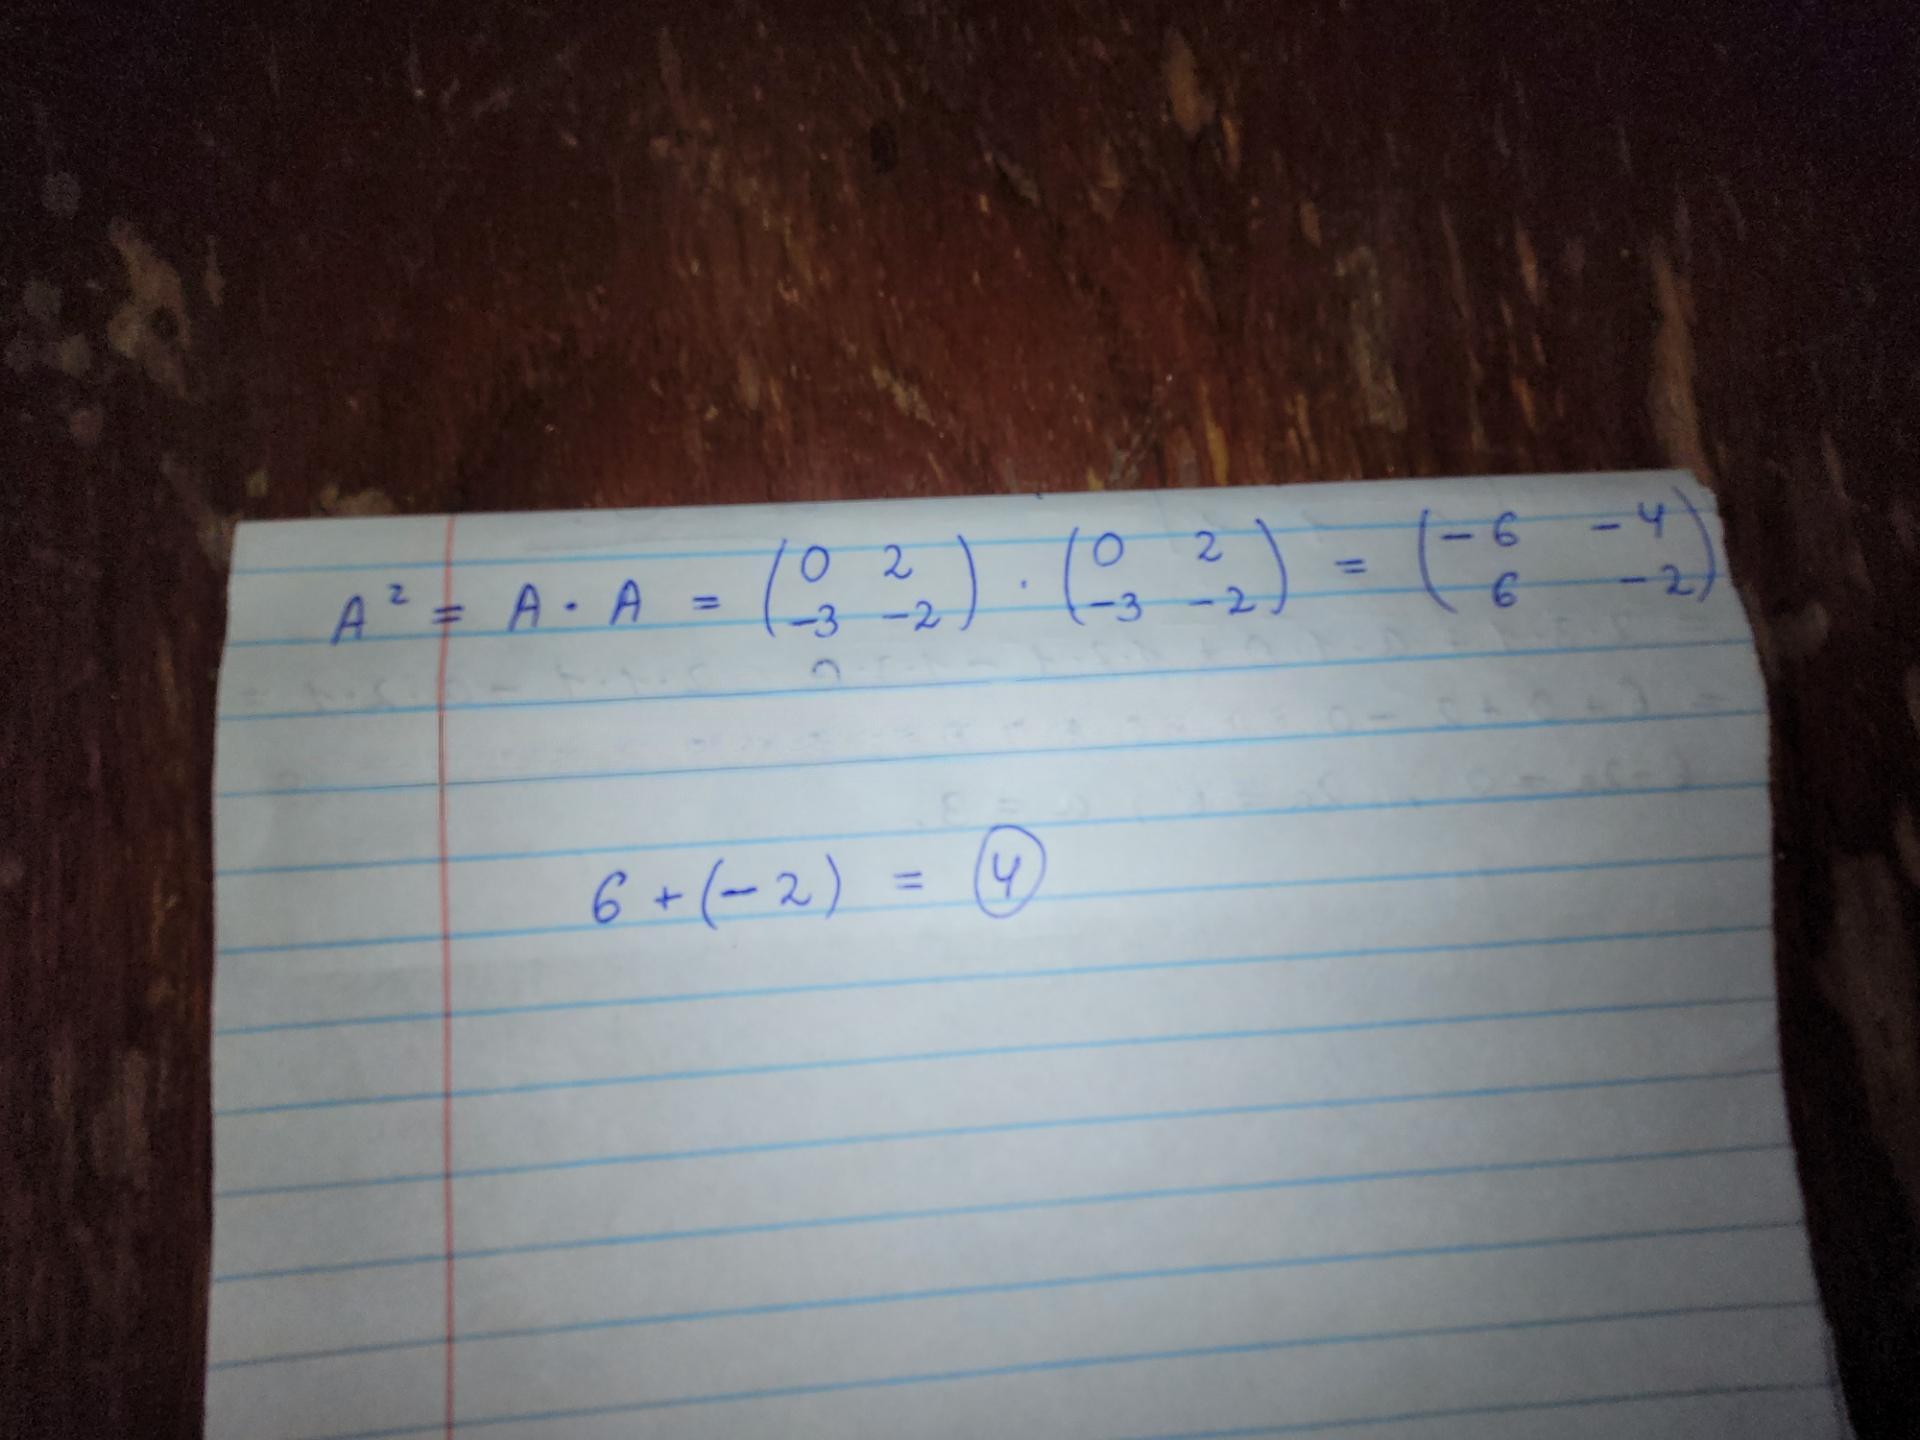 A² = A · A = (0 2 -3 -2) · (0 2 -3 -2) = (-6 -4 6 -2)
6 + (-2) = 4